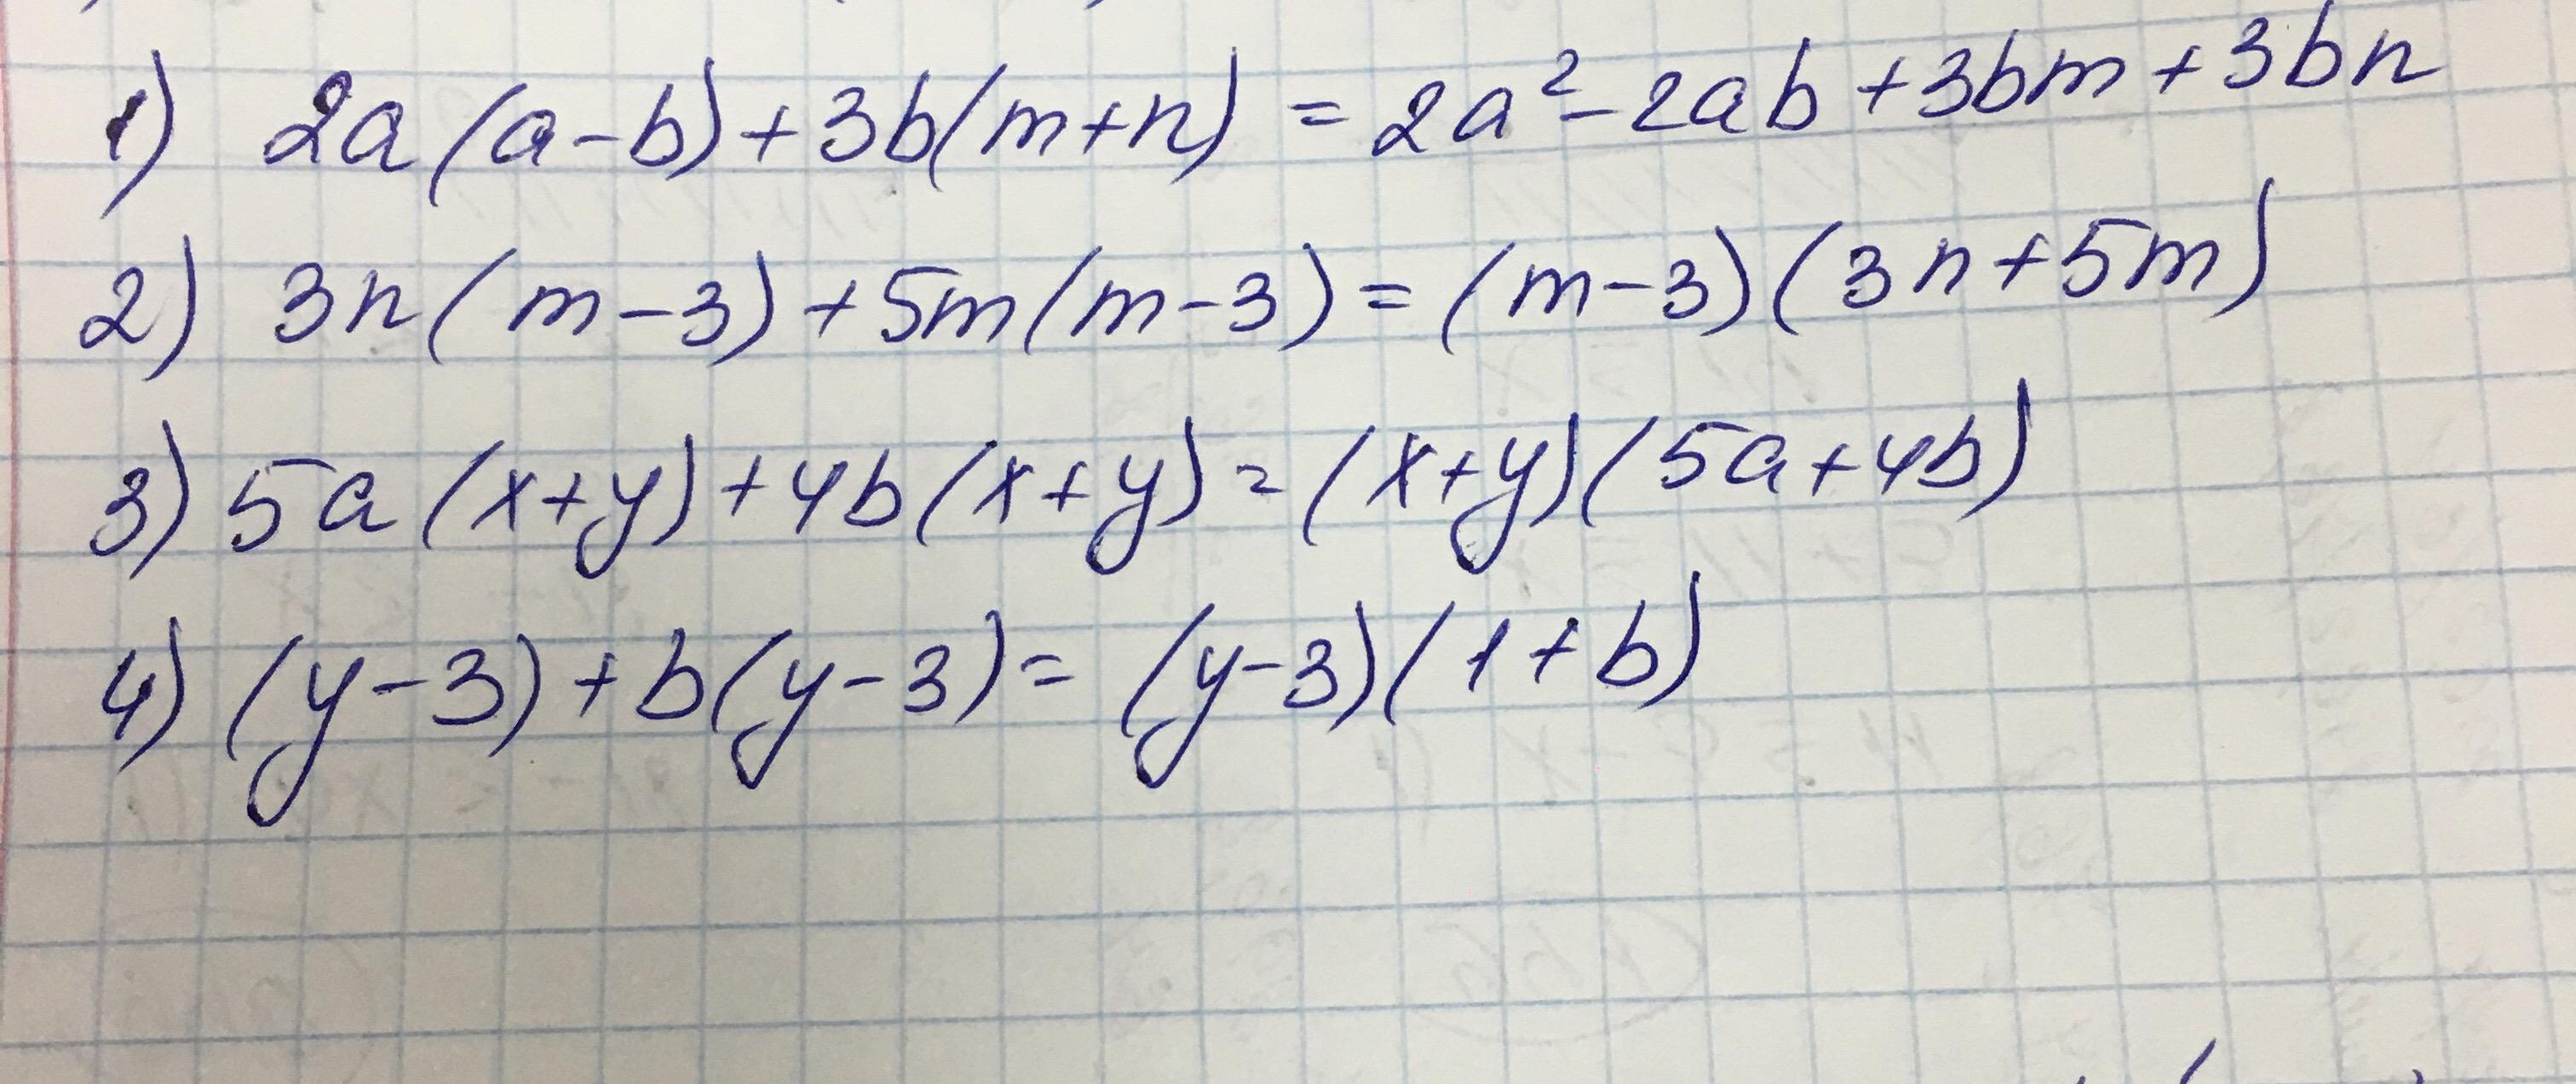 1) 2a(a-b)+3b(m+n) = 2a²-2ab+3bm+3bn
2) 3n(m-3)+5m(m-3)=(m-3)(3n+5m)
3) 5a(x+y)+4b(x+y)=(x+y)(5a+4b)
4) (y-3)+b(y-3)= (y-3)(1+b)